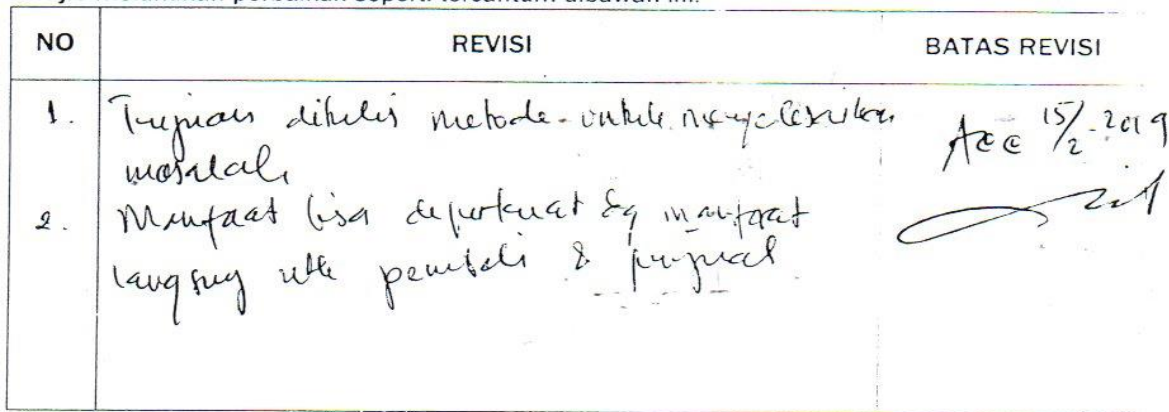 NO REVISI BATAS REVISI
1. Tujuan ditulis metode untuk menyelesaikan
masalah
Acc 15/2-2019
2. Manfaat bisa diperkuat dg manfaat
langsung utk pembeli & penjual